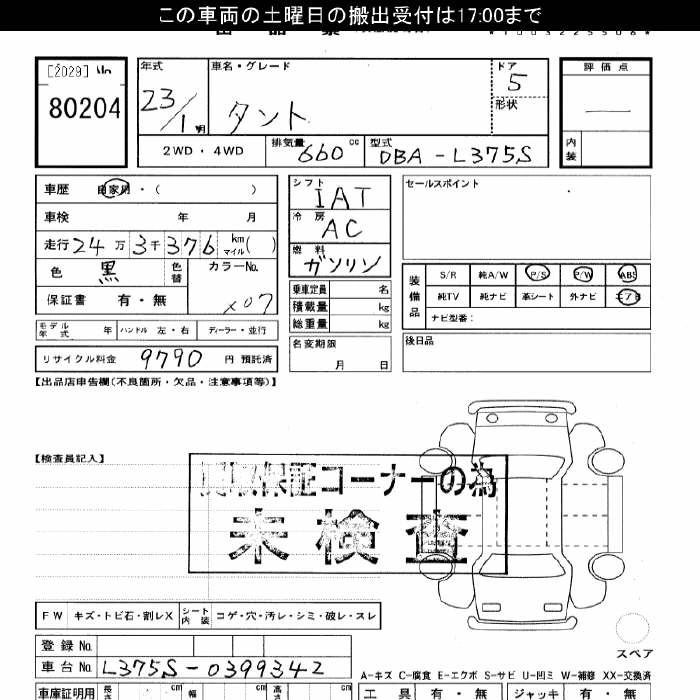 この車両の土曜日の搬出受付は17:00まで
[2029] No
80204
年式
23/1 月
車名・グレード
タント
ドア
5
形状
評価点
—
内装
2WD・4WD
排気量 660 cc
型式 DBA-L375S
車歴 自家用・( )
車検 年 月
走行 24万3千376 km マイル( )
色 黒 色替
カラーNo. X07
保証書 有・無
モデル年式 年 ハンドル 左・右 ディーラー・並行
リサイクル料金 9790 円 預託済
シフト IAT
冷房 AC
燃料 ガソリン
乗車定員 名
積載量 kg
総重量 kg
名変期限
月 日
セールスポイント
装備品
S/R 純A/W P/S P/W ABS
純TV 純ナビ 革シート 外ナビ エアB
ナビ型番:
後日品
【出品店申告欄(不良箇所・欠品・注意事項等)】
【検査員記入】
保証コーナーの為
未検査
FW キズ・トビ石・割レX シート内装 コゲ・穴・汚レ・シミ・破レ・スレ
登録No.
車台No. L375S-0399342
スペア
A-キズ C-腐食 E-エクボ S-サビ U-凹ミ W-補修 XX-交換済
車庫証明用 長さ cm 幅 cm 高さ cm
工具 有・無 ジャッキ 有・無